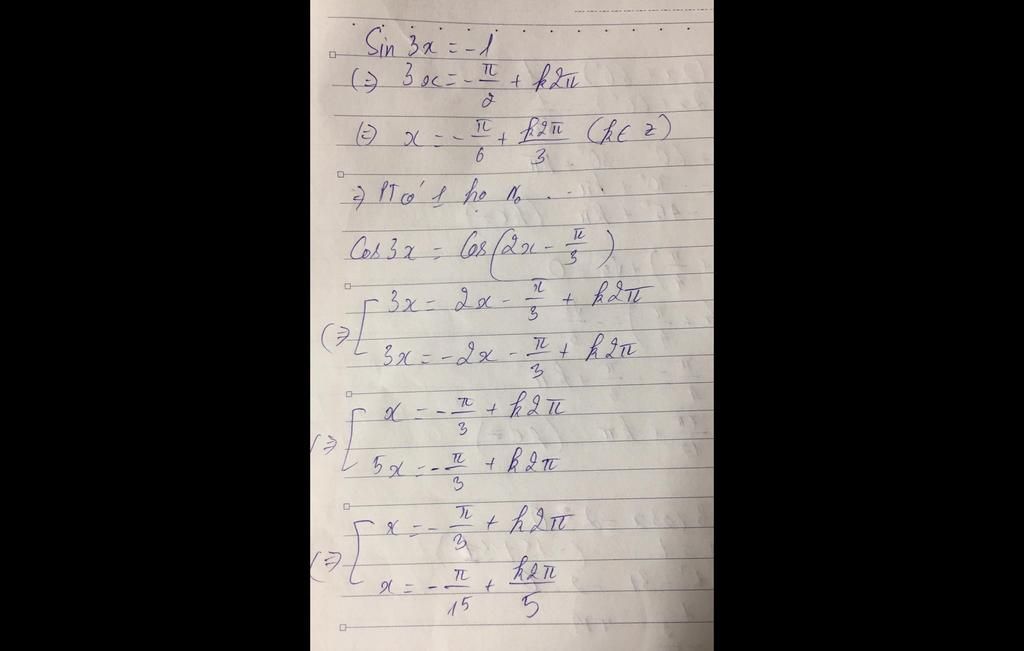 Sin 3x = -1
(=) 3x = -π/2 + k2π
(=) x = -π/6 + k2π/3 (k ∈ Z)
=) PT có 1 họ no ....
Cos 3x = Cos(2x - π/3)
(=) [ 3x = 2x - π/3 + k2π
3x = -2x - π/3 + k2π
(=) [ x = -π/3 + k2π
5x = -π/3 + k2π
(=) [ x = -π/3 + k2π
x = -π/15 + k2π/5